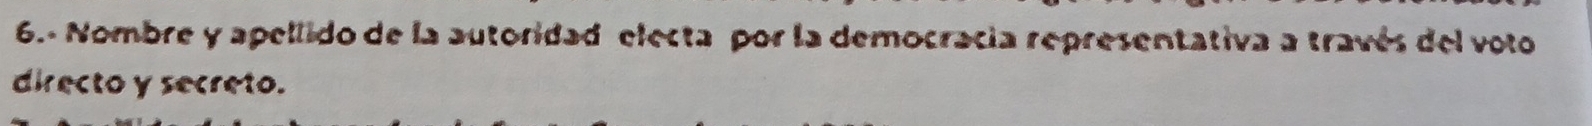 6.- Nombre y apellido de la autoridad electa por la democracia representativa a través del voto
directo y secreto.